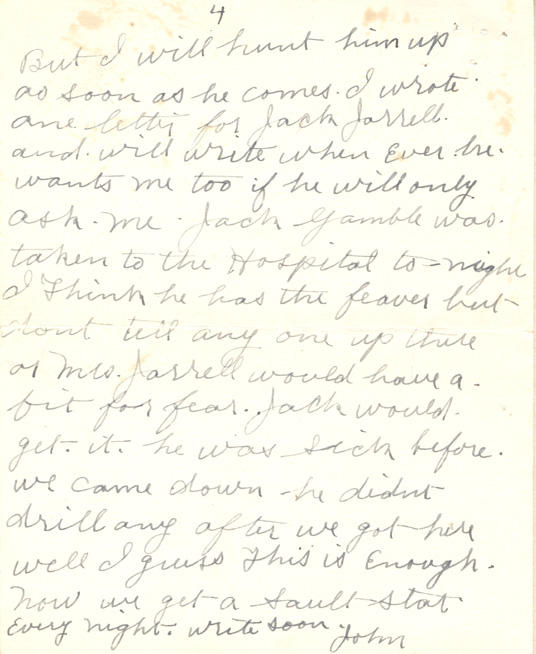 4
But I will hunt him up
as soon as he comes. I wrote
one letter for Jack Jarrell.
and. will write when Ever. he.
wants me too if he will only
ask. me. Jack Gamble was.
taken to the Hospital to-night
I Think he has the feaver but
dont tell any one up there
or Mrs. Jarrell would have a.
fit for fear. Jack would.
get. it. he was sick before.
we came down - he didnt
drill any after we got here
well I guess This is Enough.
now we get a sault stat
Every night. write soon.
John